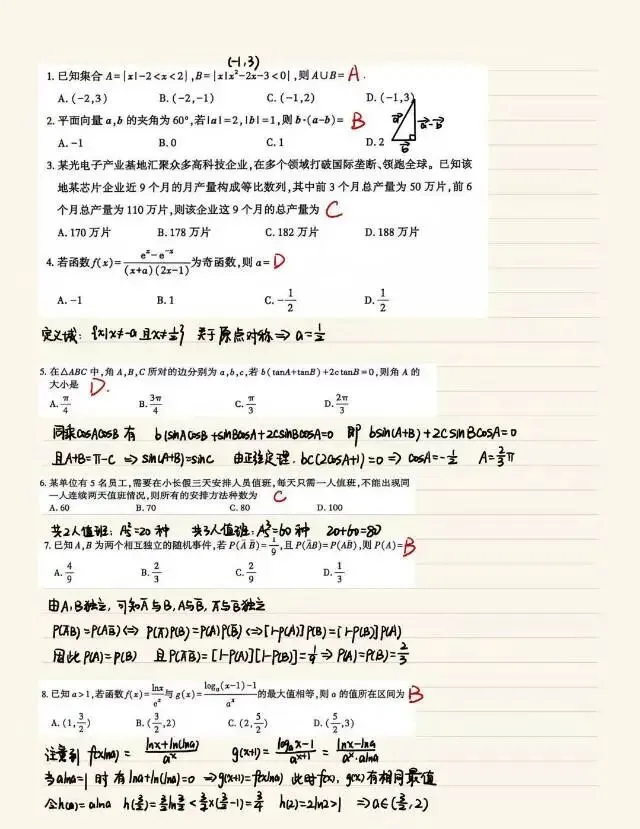 (-1,3)
1. 已知集合 A={x|-2<x<2},B={x|x²-2x-3<0},则 A∪B= A .
A. (-2,3) B. (-2,-1) C. (-1,2) D. (-1,3)
2. 平面向量 a,b 的夹角为 60°,若|a|=2,|b|=1,则 b·(a-b)= B
A. -1 B. 0 C. 1 D. 2
a a-b
b
3. 某光电子产业基地汇聚众多高科技企业,在多个领域打破国际垄断、领跑全球。已知该
地某芯片企业近 9 个月的月产量构成等比数列,其中前 3 个月总产量为 50 万片,前 6
个月总产量为 110 万片,则该企业这 9 个月的总产量为 C
A. 170 万片 B. 178 万片 C. 182 万片 D. 188 万片
4. 若函数 f(x)=(eˣ-e⁻ˣ)/((x+a)(2x-1))为奇函数,则 a= D
A. -1 B. 1 C. -1/2 D. 1/2
定义域: {x|x≠-a 且x≠1/2} 关于原点对称 ⇒ a=1/2
5. 在△ABC 中,角 A,B,C 所对的边分别为 a,b,c,若 b(tanA+tanB)+2ctanB=0,则角 A 的
大小是 D.
A. π/4 B. 3π/4 C. π/3 D. 2π/3
同乘cosAcosB 有 b(sinAcosB+sinBcosA)+2csinBcosA=0 即 bsin(A+B)+2csinBcosA=0
且A+B=π-C ⇒ sin(A+B)=sinC 由正弦定理. bc(2cosA+1)=0 ⇒ cosA=-1/2 A=2/3π
6. 某单位有 5 名员工,需要在小长假三天安排人员值班,每天只需一人值班,不能出现同
一人连续两天值班情况,则所有的安排方法种数为 C
A. 60 B. 70 C. 80 D. 100
共2人值班: A₅²=20种 共3人值班: A₅³=60种 20+60=80
7. 已知 A,B 为两个相互独立的随机事件,若 P(A̅ B̅)=1/9,且 P(A̅B)=P(AB̅),则 P(A)= B
A. 4/9 B. 2/3 C. 2/9 D. 1/3
由A,B独立, 可知A̅与B, A与B̅, A̅与B̅独立
P(A̅B)=P(AB̅) ⇔ P(A̅)P(B)=P(A)P(B̅) ⇔ [1-P(A)]P(B)=[1-P(B)]P(A)
因此P(A)=P(B) 且P(A̅B̅)=[1-P(A)][1-P(B)]=1/9 ⇒ P(A)=P(B)=2/3
8. 已知 a>1,若函数 f(x)=lnx/eˣ与 g(x)=(logₐ(x-1)-1)/aˣ的最大值相等,则 a 的值所在区间为 B
A. (1,3/2) B. (3/2,2) C. (2,5/2) D. (5/2,3)
注意到 f(xlna)=(lnx+ln(lna))/aˣ g(x+1)=(logₐx-1)/aˣ⁺¹=(lnx-lna)/(aˣ·alna)
当alna=1 时 有lna+ln(lna)=0 ⇒ g(x+1)=f(xlna) 此时f(x), g(x)有相同最值
令h(a)=alna h(3/2)=3/2ln3/2<3/2×(3/2-1)=3/4 h(2)=2ln2>1 ⇒ a∈(3/2,2)